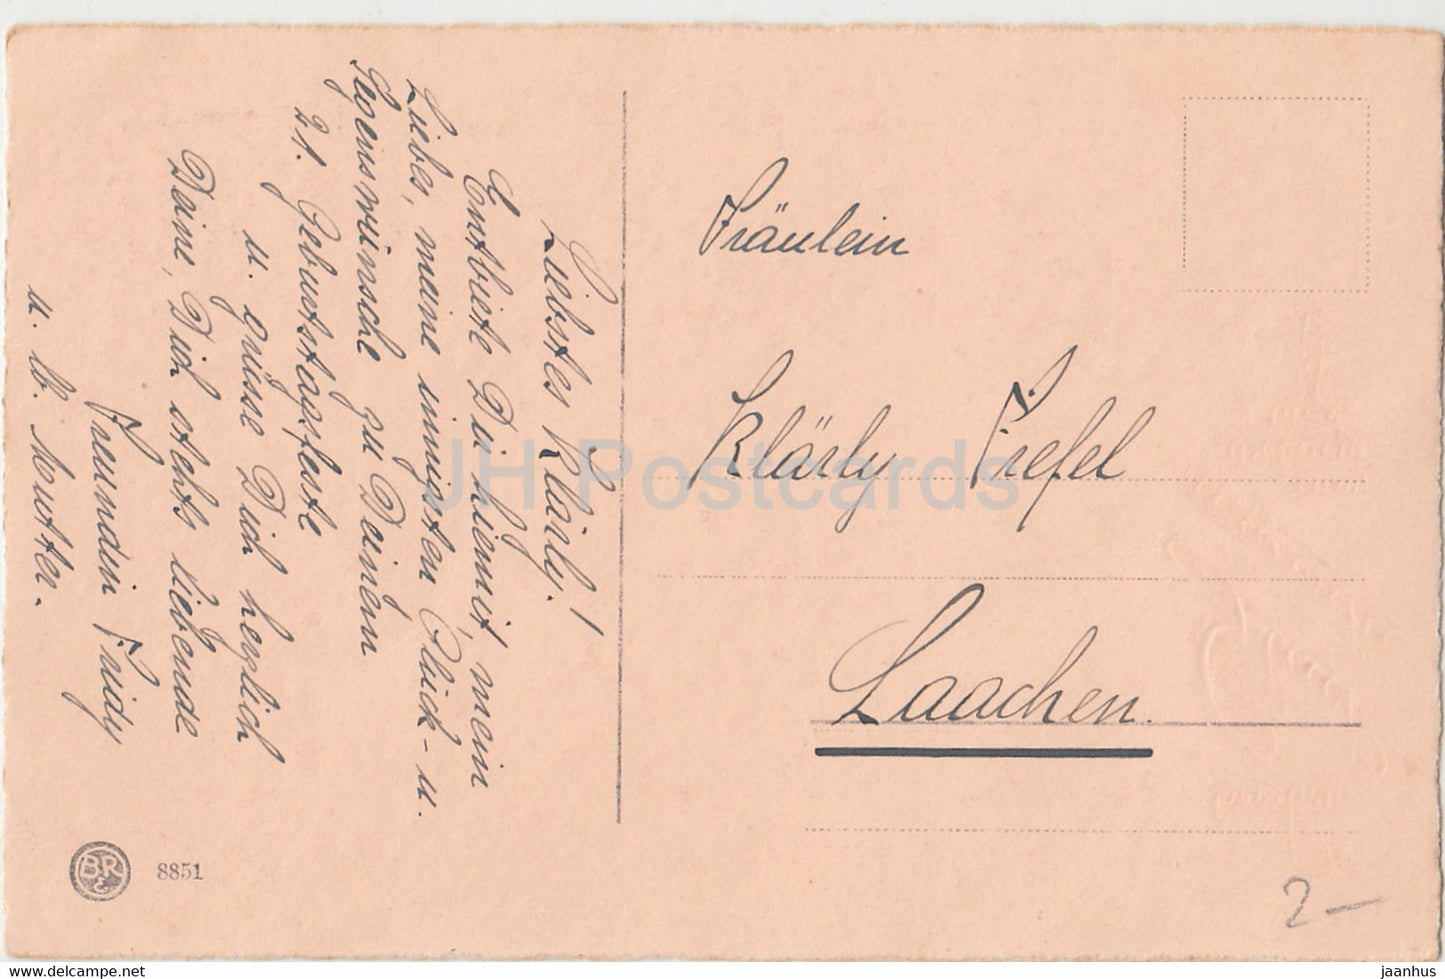 Liebstes Klärly!
Entbiete Dir hiemit, mein
Liebes, meine innigsten Glück- u.
Segenswünsche zu Deinem
21. Geburtstagsfeste
u. grüsse Dich herzlich
Deine, Dich stehts liebende
Freundin Fridy
u. lb. Mutter.
Fräulein
Klärly Trefel
Laachen.
JH Postcards
BR
E
8851
2 —
jaanhus
https://www.jhpostcards.com